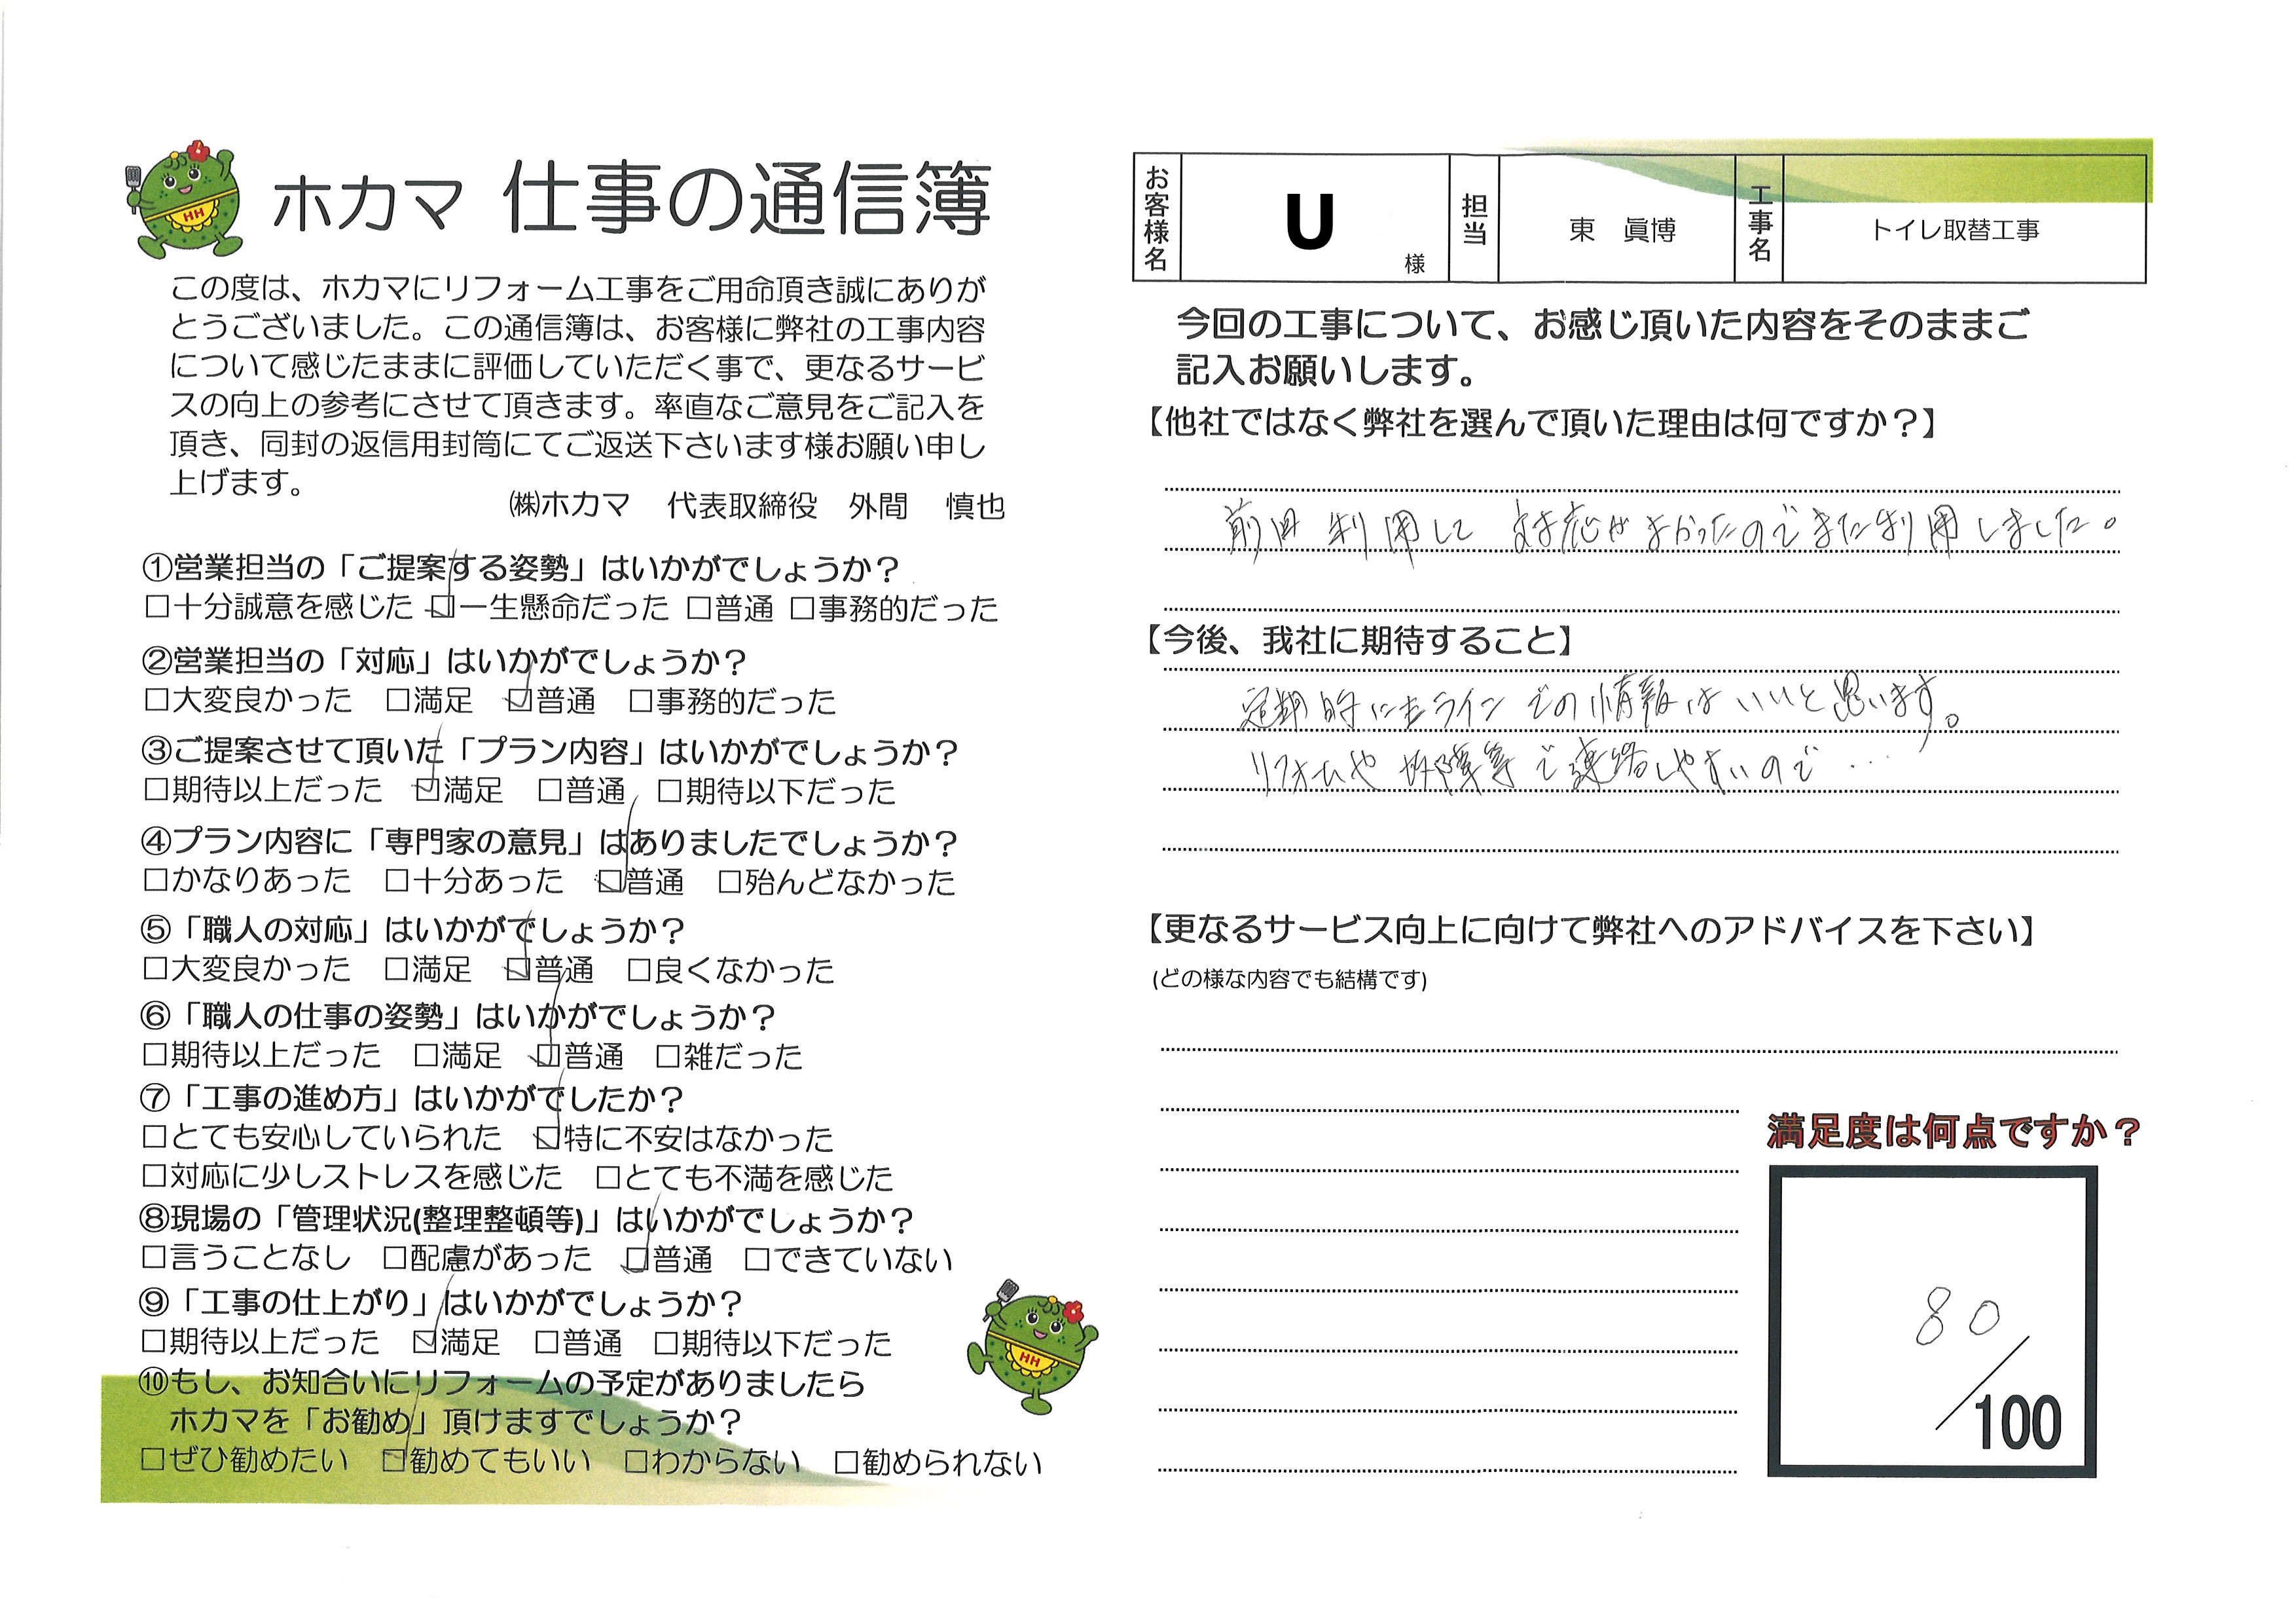 ホカマ 仕事の通信簿
この度は、ホカマにリフォーム工事をご用命頂き誠にありが
とうございました。この通信簿は、お客様に弊社の工事内容
について感じたままに評価していただく事で、更なるサービ
スの向上の参考にさせて頂きます。率直なご意見をご記入を
頂き、同封の返信用封筒にてご返送下さいます様お願い申し
上げます。
㈱ホカマ 代表取締役 外間 慎也
①営業担当の「ご提案する姿勢」はいかがでしょうか？
□十分誠意を感じた ☑一生懸命だった □普通 □事務的だった
②営業担当の「対応」はいかがでしょうか？
□大変良かった □満足 ☑普通 □事務的だった
③ご提案させて頂いた「プラン内容」はいかがでしょうか？
□期待以上だった ☑満足 □普通 □期待以下だった
④プラン内容に「専門家の意見」はありましたでしょうか？
□かなりあった □十分あった ☑普通 □殆んどなかった
⑤「職人の対応」はいかがでしょうか？
□大変良かった □満足 ☑普通 □良くなかった
⑥「職人の仕事の姿勢」はいかがでしょうか？
□期待以上だった □満足 ☑普通 □雑だった
⑦「工事の進め方」はいかがでしたか？
□とても安心していられた ☑特に不安はなかった
□対応に少しストレスを感じた □とても不満を感じた
⑧現場の「管理状況(整理整頓等)」はいかがでしょうか？
□言うことなし □配慮があった ☑普通 □できていない
⑨「工事の仕上がり」はいかがでしょうか？
□期待以上だった ☑満足 □普通 □期待以下だった
⑩もし、お知合いにリフォームの予定がありましたら
ホカマを「お勧め」頂けますでしょうか？
□ぜひ勧めたい ☑勧めてもいい □わからない □勧められない
HH
HH
お客様名 U 様 担当 東 眞博 工事名 トイレ取替工事
今回の工事について、お感じ頂いた内容をそのままご
記入お願いします。
【他社ではなく弊社を選んで頂いた理由は何ですか？】
前回 利用して 対応がよかったのでまた利用しました。
【今後、我社に期待すること】
定期的にラインでの情報はいいと思います。
リフォームや故障等で連絡しやすいので…
【更なるサービス向上に向けて弊社へのアドバイスを下さい】
(どの様な内容でも結構です)
満足度は何点ですか？
80
/100